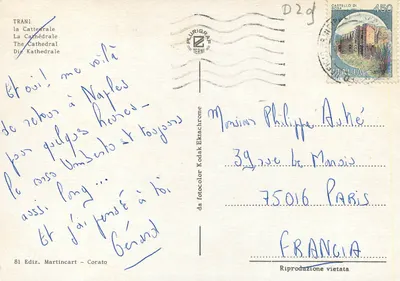 TRANI
la Cattedrale
La Cathédrale
The Cathedral
Die Kathedrale
Et oui! me voilà
de retour à Naples
pour quelques heures -
le corso Umberto est toujours
aussi long...
Et j'ai pensé à toi
Gérard
81 Ediz. Martincart - Corato
PLURIGRAF
da fotocolor Kodak Ektachrome
D29
450
Monsieur Philippe
39 rue
75016 PARIS
FRANCIA
Riproduzione vietata